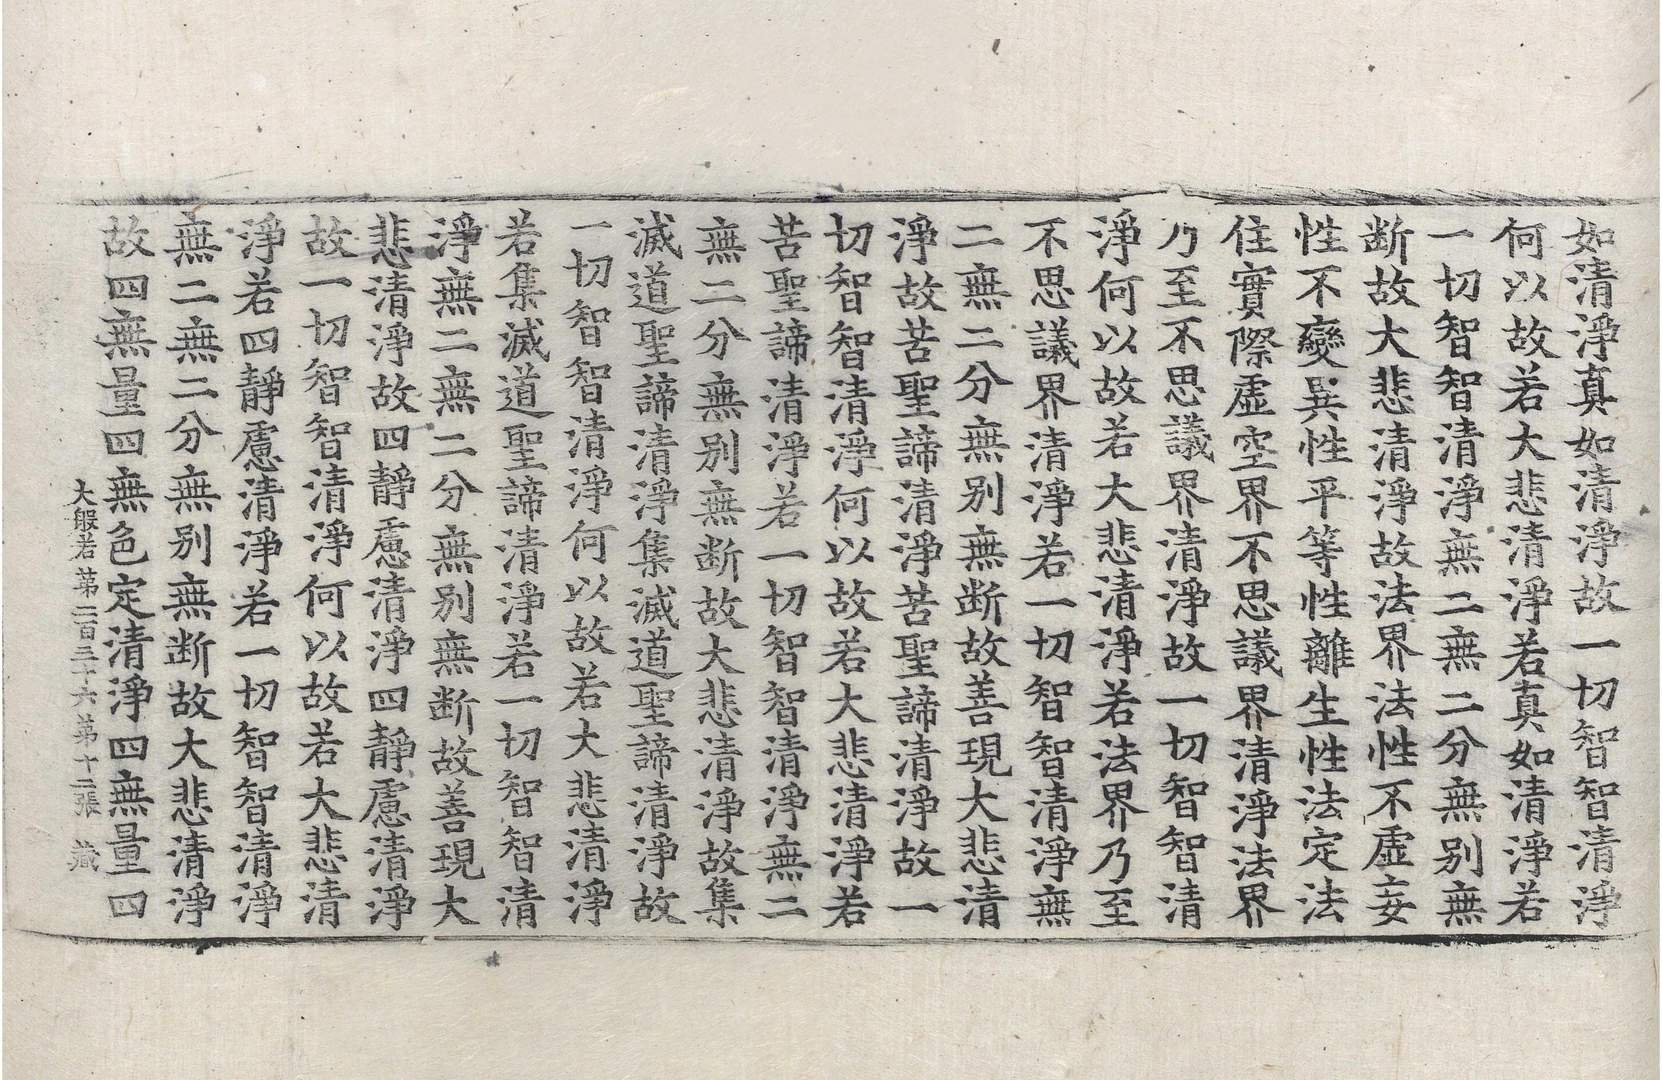 如清淨真如清淨故一切智智清淨
何以故若大悲清淨若真如清淨若
一切智智清淨無二無二分無別無
断故大悲清淨故法界法性不虛妄
性不變異性平等性離生性法定法
住實際虛空界不思議界清淨法界
乃至不思議界清淨故一切智智清
淨何以故若大悲清淨若法界乃至
不思議界清淨若一切智智清淨無
二無二分無別無断故善現大悲清
淨故苦聖諦清淨苦聖諦清淨故一
切智智清淨何以故若大悲清淨若
苦聖諦清淨若一切智智清淨無二
無二分無別無断故大悲清淨故集
滅道聖諦清淨集滅道聖諦清淨故
一切智智清淨何以故若大悲清淨
若集滅道聖諦清淨若一切智智清
淨無二無二分無別無断故善現大
悲清淨故四靜慮清淨四靜慮清淨
故一切智智清淨何以故若大悲清
淨若四靜慮清淨若一切智智清淨
無二無二分無別無断故大悲清淨
故四無量四無色定清淨四無量四
大般若第二百三十六第十二張 藏